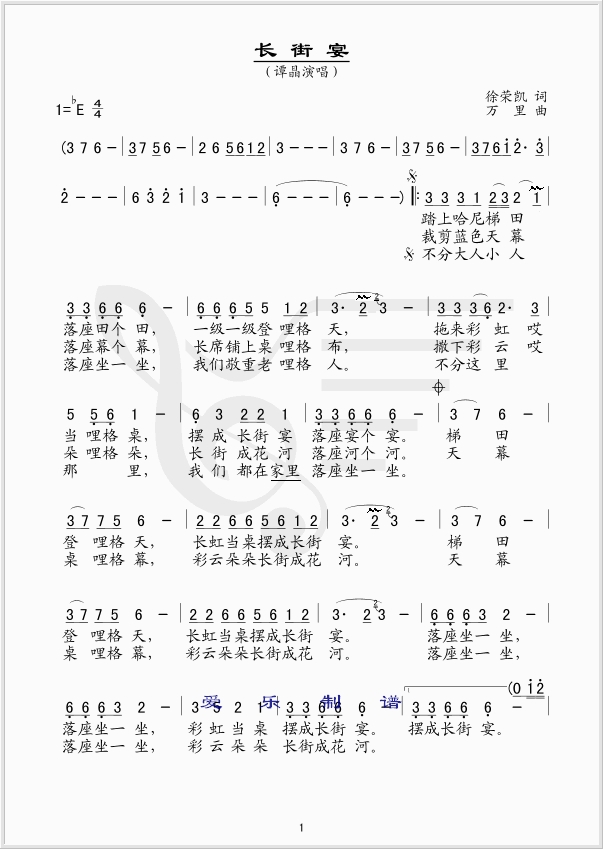 长街宴
(谭晶演唱)
徐荣凯 词
1=♭E 4/4 万 里 曲
(3 7 6 - | 3 7 5 6 - | 2 6 5 6 1 2 | 3 - - - | 3 7 6 - | 3 7 5 6 - | 3 7 6 1 2· 3 |
2 - - - | 6 3 2 1 | 3 - - - | 6 - - - | 6 - - -) 𝄋 ‖: 3 3 3 1 2 3 2 1 |
踏上哈尼梯 田
裁剪蓝色天 幕
𝄋 不分大人小 人
3 3 6 6 6 - | 6 6 6 5 5 1 2 | 3· 2 3 - | 3 3 3 6 2· 3 |
落座田个 田, 一级一级登 哩格 天, 拖来彩 虹 哎
落座幕个 幕, 长席铺上桌 哩格 布, 撒下彩 云 哎
落座坐一 坐, 我们敬重老 哩格 人。 不分这 里
5 5 6 1 - | 6 3 2 2 1 | 3 3 6 6 6 - | 3 7 6 - |
当 哩格 桌, 摆 成 长街 宴 落座宴个 宴。 梯 田
朵 哩格 朵, 长 街 成花 河 落座河个 河。 天 幕
那 里, 我 们 都在 家里 落座坐一 坐。
3 7 7 5 6 - | 2 2 6 6 5 6 1 2 | 3· 2 3 - | 3 7 6 - |
登 哩格 天, 长虹当桌摆成长街 宴。 梯 田
桌 哩格 幕, 彩云朵朵长街成花 河。 天 幕
3 7 7 5 6 - | 2 2 6 6 5 6 1 2 | 3· 2 3 - | 6 6 6 3 2 - |
登 哩格 天, 长虹当桌摆成长街 宴。 落座坐一 坐,
桌 哩格 幕, 彩云朵朵长街成花 河。 落座坐一 坐,
爱 乐 制 谱
(0 1 2
6 6 6 3 2 - | 3 5 2 1 | 3 3 6 6 6 - | 3 3 6 6 6 - |
落座坐一 坐, 彩 虹 当 桌 摆成长街 宴。 摆成长街 宴。
落座坐一 坐, 彩 云 朵 朵 长街成花 河。
1